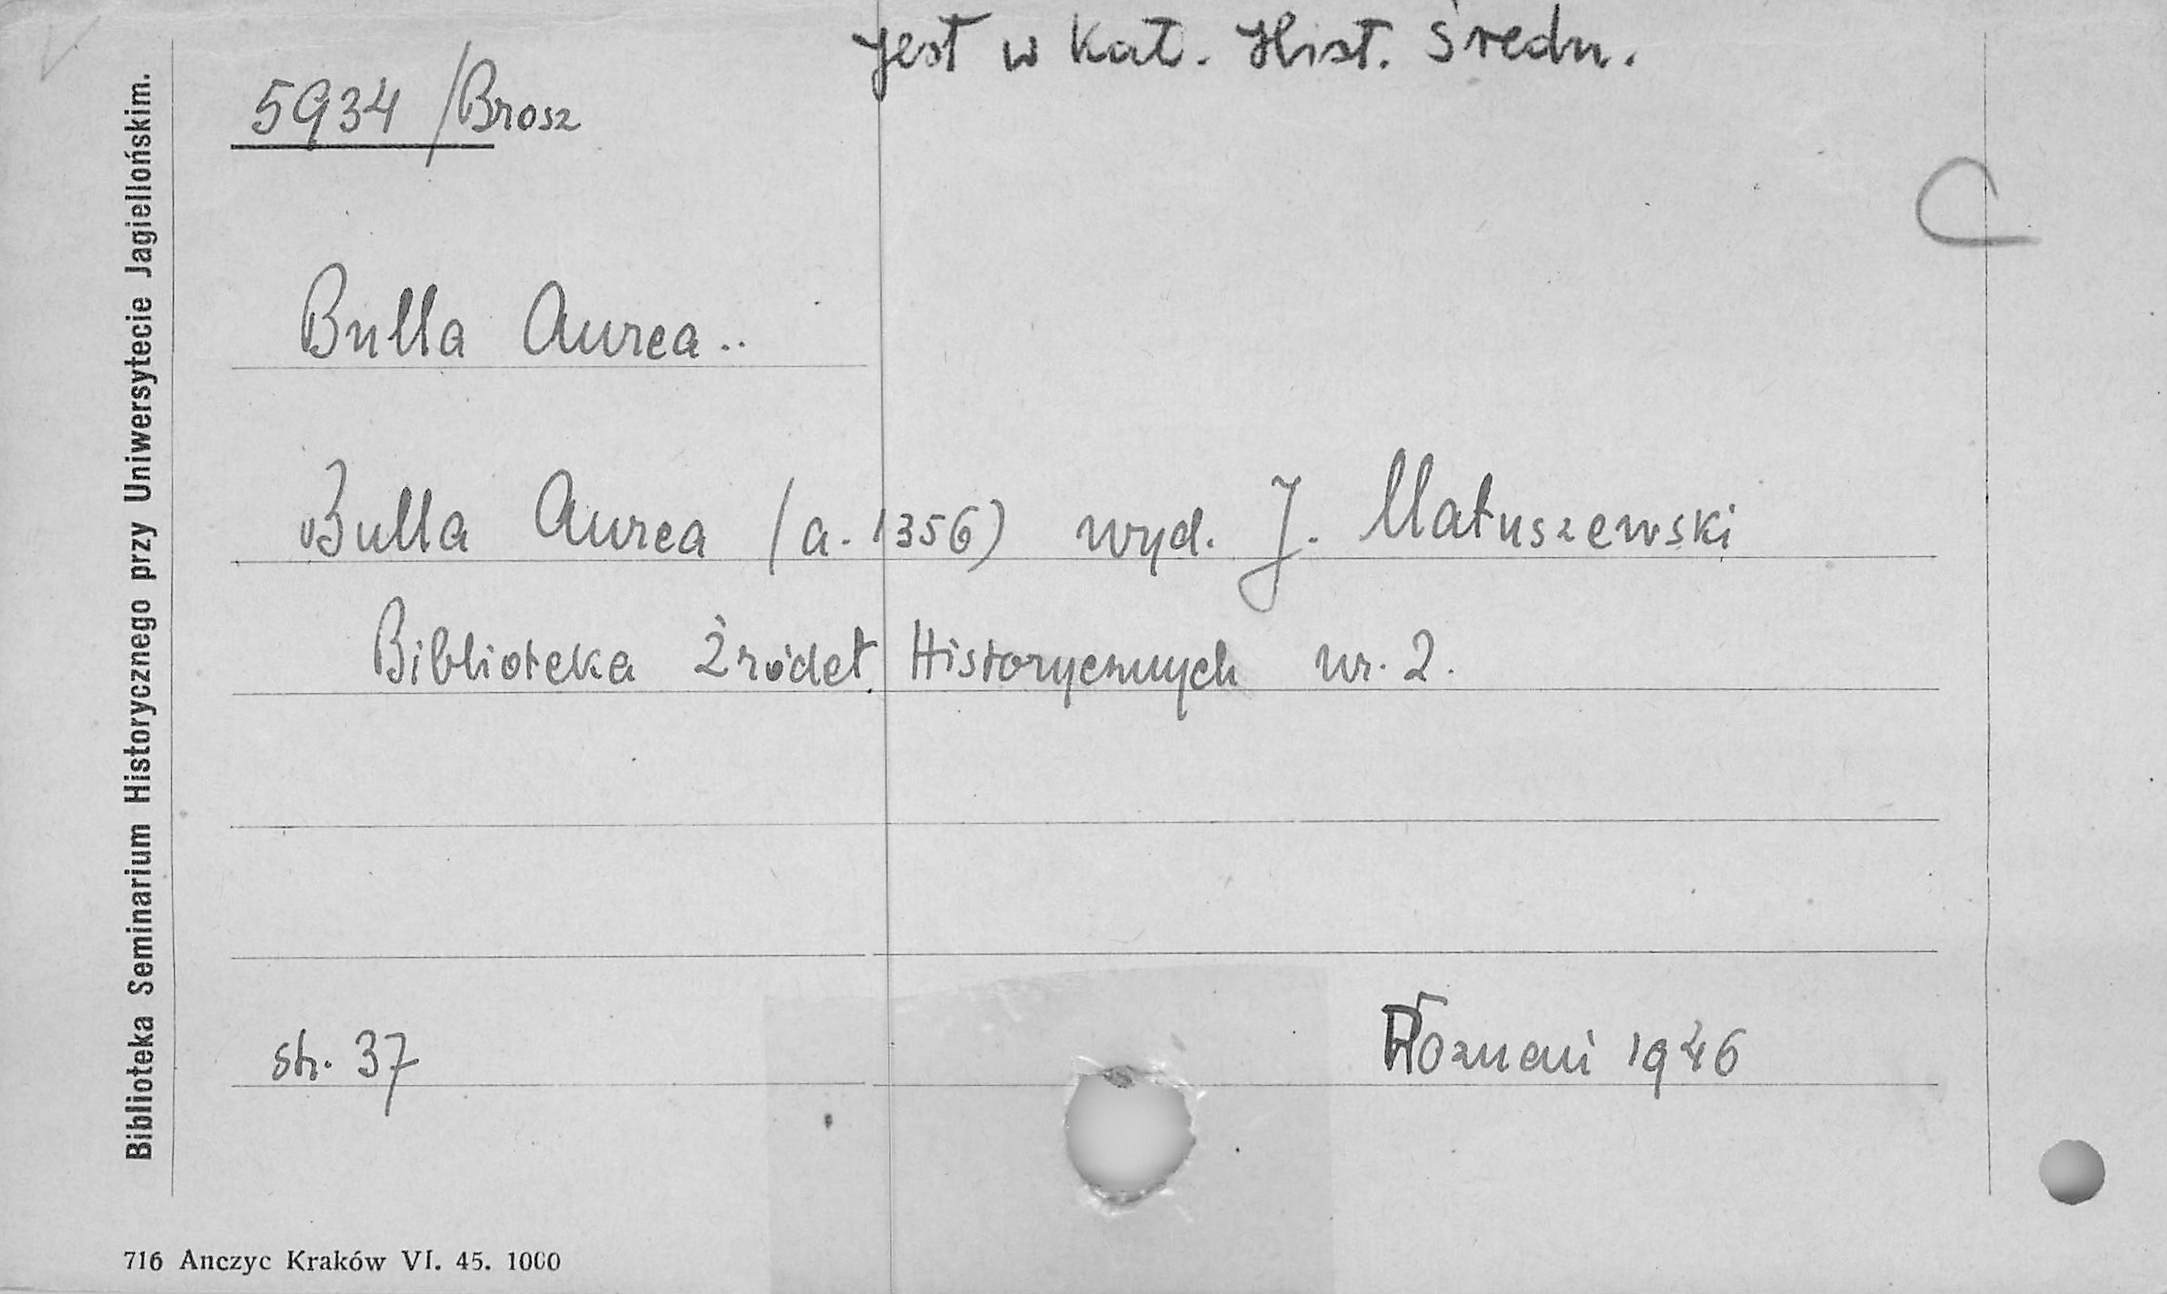 jest w kat. Hist. Średn.
5934 /Brosz
C
Bulla Aurea..
Bulla Aurea (a. 1356) wyd. J. Matuszewski
Biblioteka Źródeł Historycznych nr. 2.
str. 37
Poznań 1946
Biblioteka Seminarium Historycznego przy Uniwersytecie Jagiellońskim.
716 Anczyc Kraków VI. 45. 1000